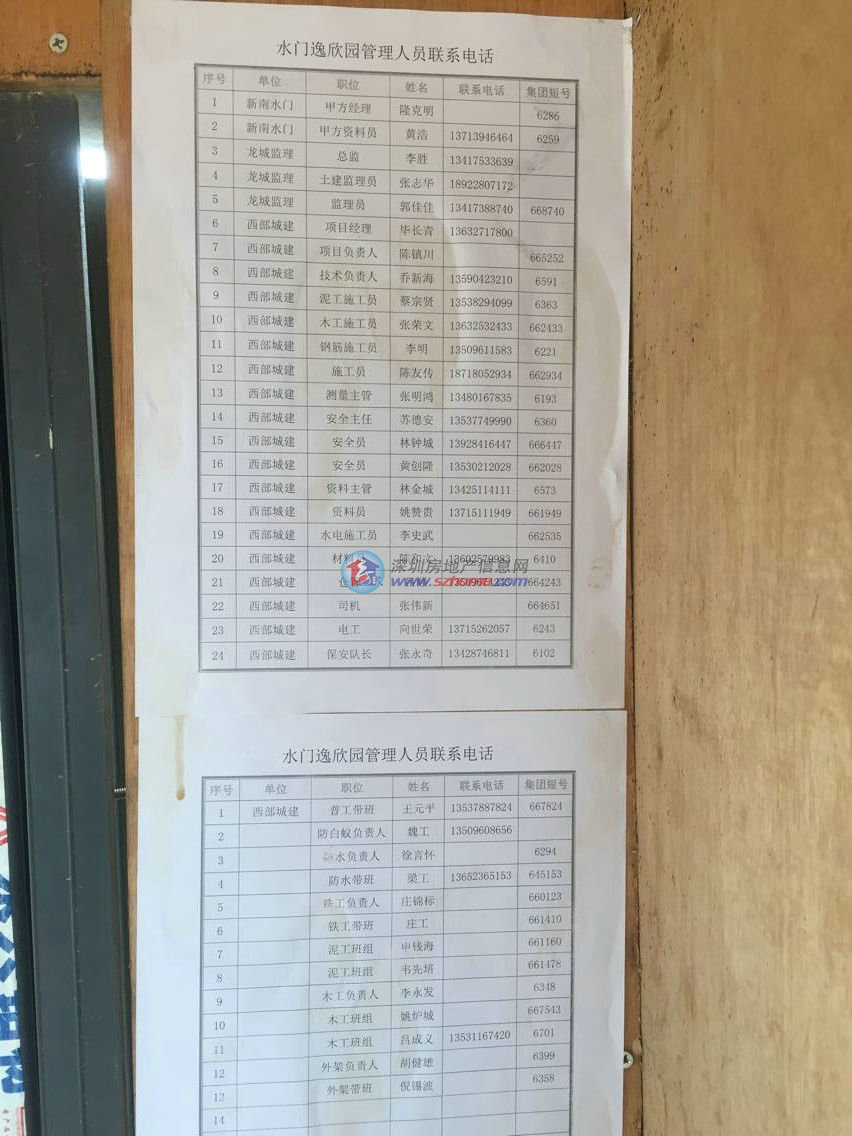 水门逸欣园管理人员联系电话
序号 单位 职位 姓名 联系电话 集团短号
1 新南水门 甲方经理 隆克明 6286
2 新南水门 甲方资料员 黄浩 13713946464 6259
3 龙城监理 总监 李胜 13417533639
4 龙城监理 土建监理员 张志华 18922807172
5 龙城监理 监理员 郭佳佳 13417388740 668740
6 西部城建 项目经理 毕长青 13632717800
7 西部城建 项目负责人 陈镇川 665252
8 西部城建 技术负责人 乔新海 13590423210 6591
9 西部城建 泥工施工员 蔡宗贤 13538294099 6363
10 西部城建 木工施工员 张荣文 13632532433 662433
11 西部城建 钢筋施工员 李明 13509611583 6221
12 西部城建 施工员 陈友传 18718052934 662934
13 西部城建 测量主管 张明鸿 13480167835 6193
14 西部城建 安全主任 苏德安 13537749990 6360
15 西部城建 安全员 林钟城 13928416447 666447
16 西部城建 安全员 黄创隆 13530212028 662028
17 西部城建 资料主管 林金城 13425114111 6573
18 西部城建 资料员 姚赞贵 13715111949 661949
19 西部城建 水电施工员 李史武 662535
20 西部城建 材料 陈和文 13602579983 6410
21 西部城建 仓 664243
22 西部城建 司机 张伟新 664651
23 西部城建 电工 向世荣 13715262057 6243
24 西部城建 保安队长 张永奇 13428746811 6102
深圳房地产信息网
www.szhome.com
水门逸欣园管理人员联系电话
序号 单位 职位 姓名 联系电话 集团短号
1 西部城建 普工带班 王元平 13537887824 667824
2 防白蚁负责人 魏工 13509608656
3 防水负责人 徐言怀 6294
4 防水带班 梁工 13652365153 645153
5 铁工负责人 庄锦标 660123
6 铁工带班 庄工 661410
7 泥工班组 申钱海 661160
8 泥工班组 韦先培 661478
9 木工负责人 李永发 6348
10 木工班组 姚炉城 667543
11 木工班组 吕成义 13531167420 6701
12 外架负责人 胡健雄 6399
13 外架带班 倪锡波 6358
14